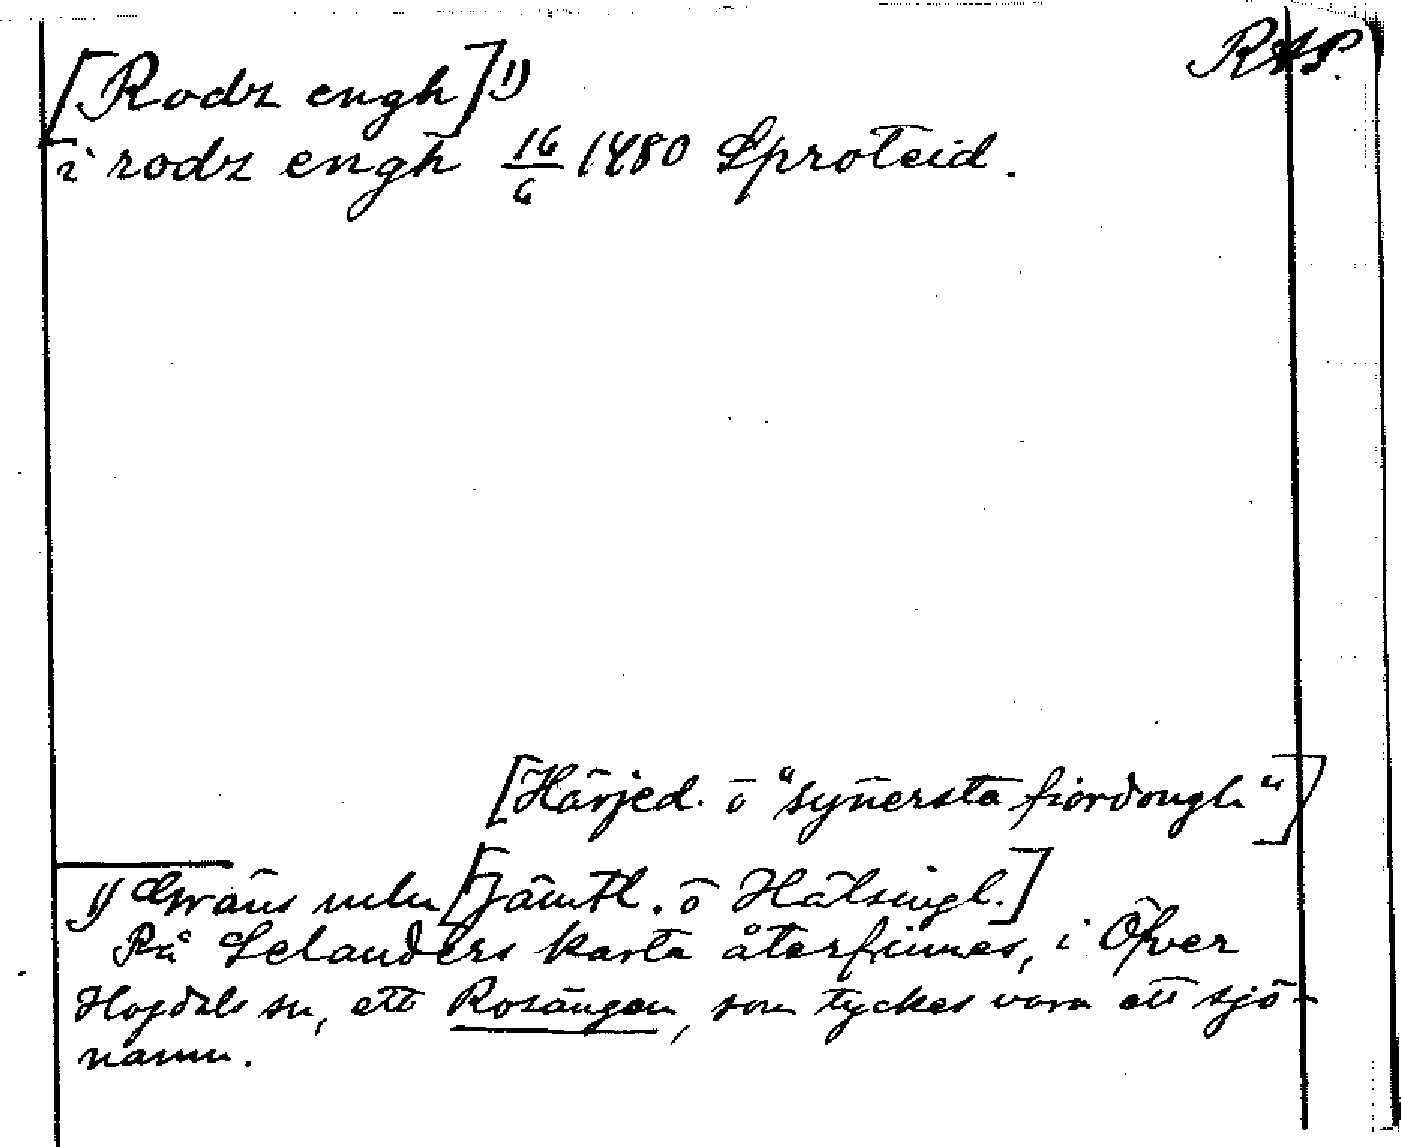 [Rodz engh]¹⁾ RAP.
i rodz engh 16/6 1480 Sproteid.
[Härjed. o "synersta fiordongh"]
1) Gräns mln [Jämtl. o Hälsingl.]
På Selanders karta återfinnes, i Öfver
Hogdals sn, ett Rosängen, som tyckes vara ett sjö-
namn.